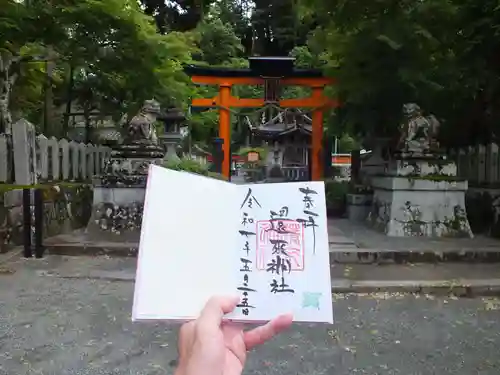 奉拝
還来神社
令和七年五月二十五日